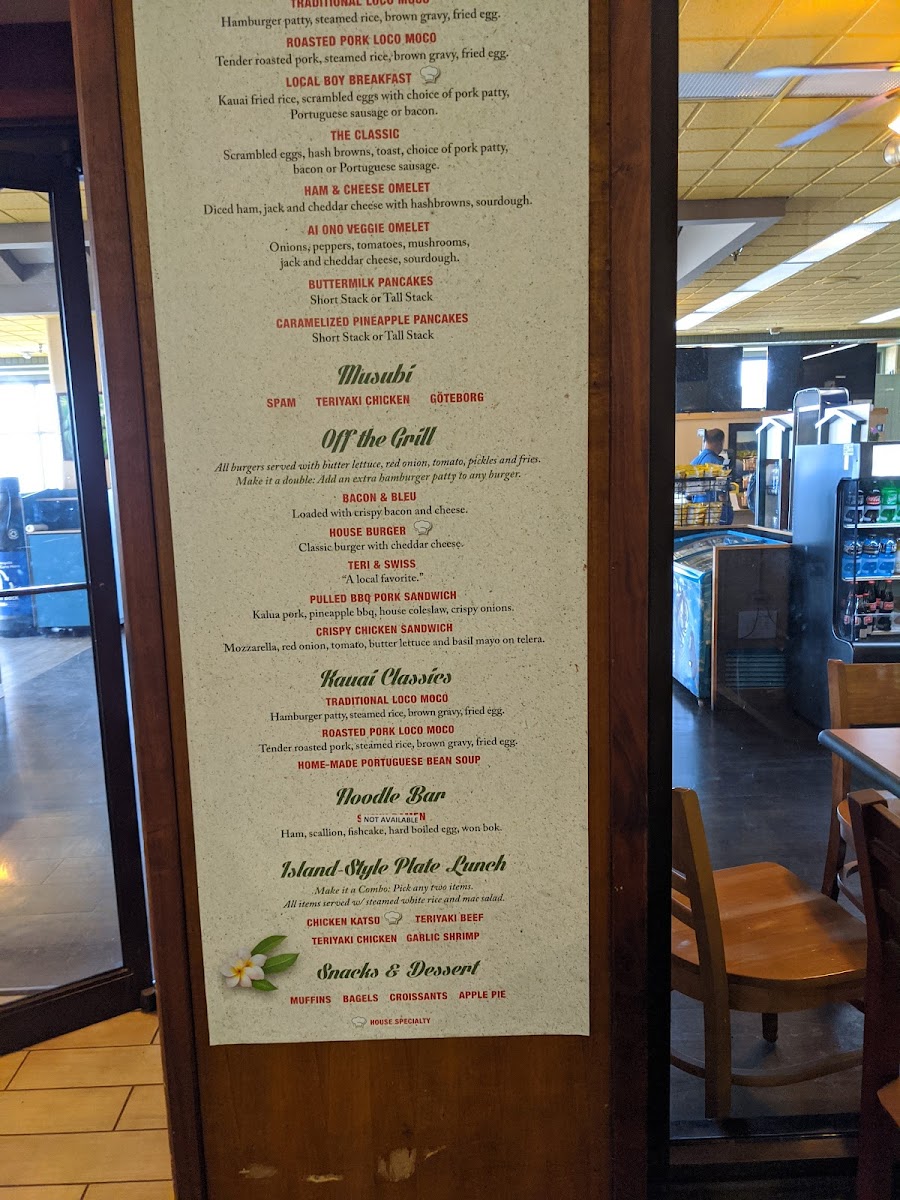 TRADITIONAL LOCO MOCO
Hamburger patty, steamed rice, brown gravy, fried egg.
ROASTED PORK LOCO MOCO
Tender roasted pork, steamed rice, brown gravy, fried egg.
LOCAL BOY BREAKFAST
Kauai fried rice, scrambled eggs with choice of pork patty,
Portuguese sausage or bacon.
THE CLASSIC
Scrambled eggs, hash browns, toast, choice of pork patty,
bacon or Portuguese sausage.
HAM & CHEESE OMELET
Diced ham, jack and cheddar cheese with hashbrowns, sourdough.
AI ONO VEGGIE OMELET
Onions, peppers, tomatoes, mushrooms,
jack and cheddar cheese, sourdough.
BUTTERMILK PANCAKES
Short Stack or Tall Stack
CARAMELIZED PINEAPPLE PANCAKES
Short Stack or Tall Stack
Musubi
SPAM TERIYAKI CHICKEN GÖTEBORG
Off the Grill
All burgers served with butter lettuce, red onion, tomato, pickles and fries.
Make it a double: Add an extra hamburger patty to any burger.
BACON & BLEU
Loaded with crispy bacon and cheese.
HOUSE BURGER
Classic burger with cheddar cheese.
TERI & SWISS
"A local favorite."
PULLED BBQ PORK SANDWICH
Kalua pork, pineapple bbq, house coleslaw, crispy onions.
CRISPY CHICKEN SANDWICH
Mozzarella, red onion, tomato, butter lettuce and basil mayo on telera.
Kauai Classics
TRADITIONAL LOCO MOCO
Hamburger patty, steamed rice, brown gravy, fried egg.
ROASTED PORK LOCO MOCO
Tender roasted pork, steamed rice, brown gravy, fried egg.
HOME-MADE PORTUGUESE BEAN SOUP
Noodle Bar
NOT AVAILABLE
Ham, scallion, fishcake, hard boiled egg, won bok.
Island-Style Plate Lunch
Make it a Combo: Pick any two items.
All items served w/ steamed white rice and mac salad.
CHICKEN KATSU TERIYAKI BEEF
TERIYAKI CHICKEN GARLIC SHRIMP
Snacks & Dessert
MUFFINS BAGELS CROISSANTS APPLE PIE
HOUSE SPECIALTY